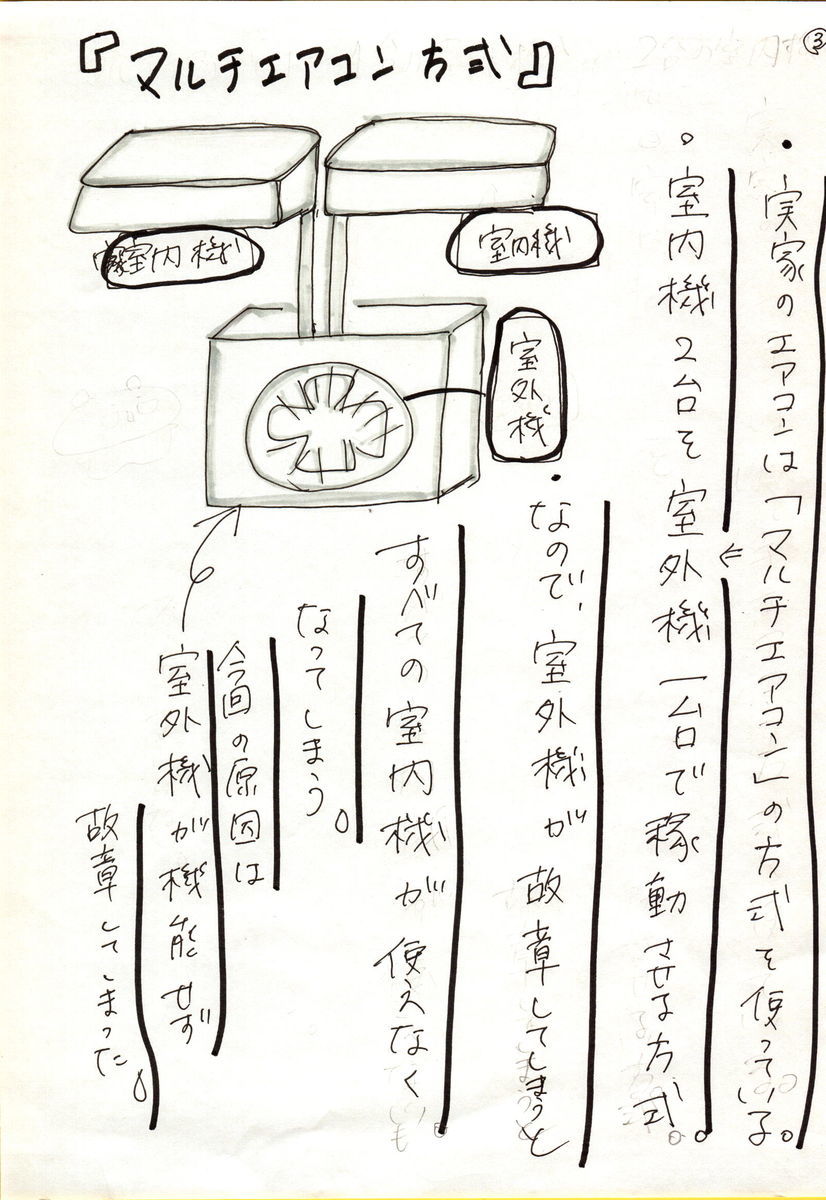 ③
『マルチエアコン方式』
室内機
室内機
室外機
・実家のエアコンは「マルチエアコン」の方式を使っている。
⇐
○室内機2台を室外機一台で稼動させる方式。
・なので、室外機が故章してしまうと
すべての室内機が使えなく
なってしまう。
今回の原因は
室外機が機能せず
故章してしまった。